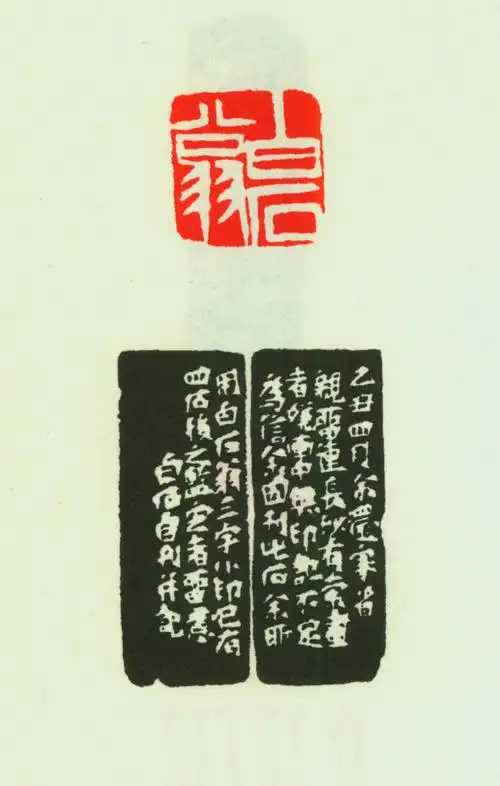 白石翁
乙丑四月余還家省
親留連長沙有索畫
者中無印記不足
為信余因刊此石余所
用白石翁三字小印已有
四石後之鑒定者留意
白石自刊并記